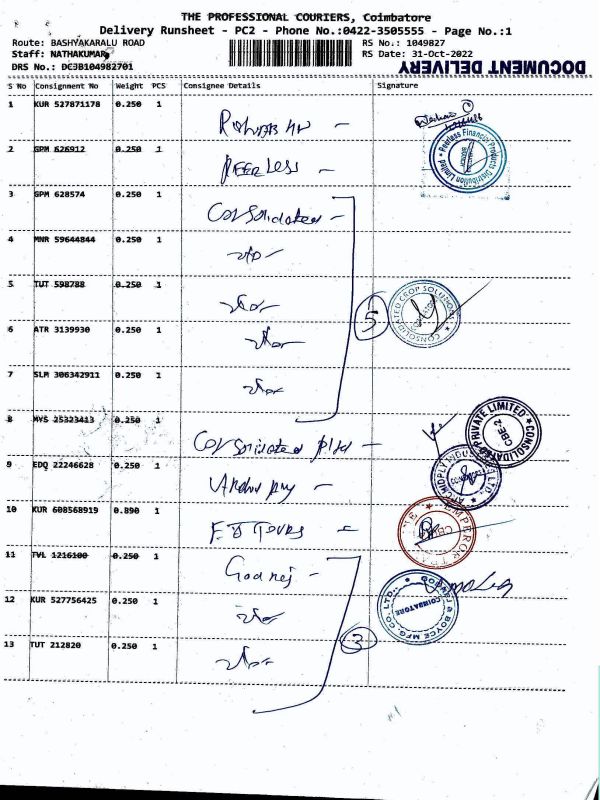 THE PROFESSIONAL COURIERS, Coimbatore
Delivery Runsheet - PC2 - Phone No.:0422-3505555 - Page No.:1
Route: BASHYAKARALU ROAD RS No.: 1049827
Staff: NATHAKUMAR RS Date: 31-Oct-2022
DRS No.: DC3B104982701 DOCUMENT DELIVERY
S No Consignment No Weight PCS Consignee Details Signature
1 KUR 527871178 0.250 1
2 GPM 626912 0.250 1 PEERLESS
Peerless Financial Products Distribution Limited
3 GPM 628574 0.250 1 Consolidated
4 MNR 59644844 0.250 1
5 TUT 598788 0.250 1
5
CONSOLIDATED CROP SOLUTIONS
6 ATR 3139930 0.250 1
7 SLM 306342911 0.250 1
8 MYS 25323413 0.250 1 Consolidated
CONSOLIDATED PRIVATE LIMITED
CBE-2
9 EDQ 22246628 0.250 1
10 KUR 608568919 0.890 1 Tours
EMPEROR
11 TVL 1216100 0.250 1 Godrej
GODREJ & BOYCE MFG CO. LTD.,
COIMBATORE
12 KUR 527756425 0.250 1
13 TUT 212820 0.250 1
3